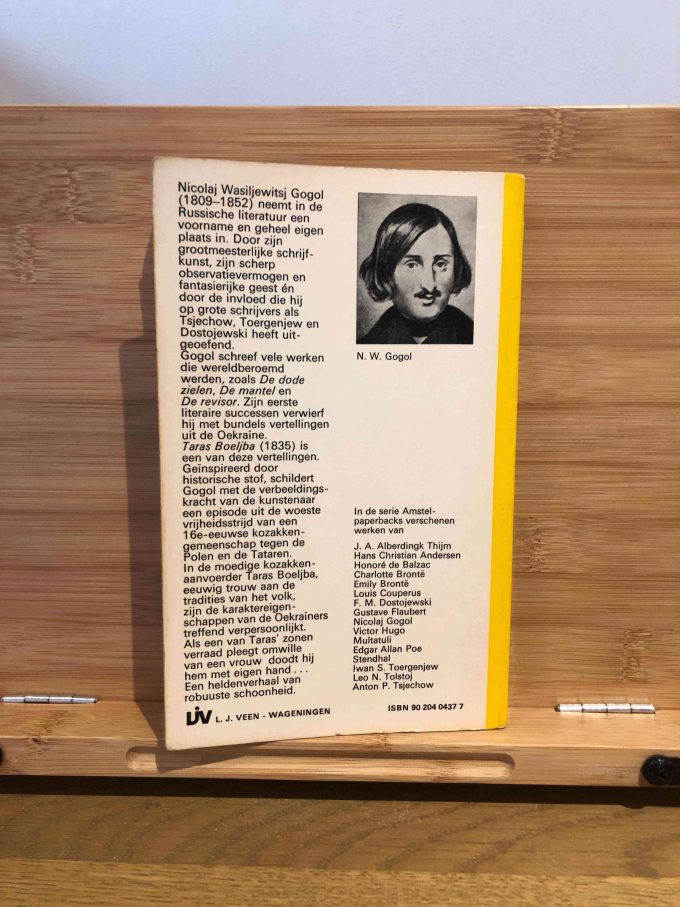 Nicolaj Wasiljewitsj Gogol
(1809–1852) neemt in de
Russische literatuur een
voorname en geheel eigen
plaats in. Door zijn
grootmeesterlijke schrijf-
kunst, zijn scherp
observatievermogen en
fantasierijke geest én
door de invloed die hij
op grote schrijvers als
Tsjechow, Toergenjew en
Dostojewski heeft uit-
geoefend.
Gogol schreef vele werken
die wereldberoemd
werden, zoals De dode
zielen, De mantel en
De revisor. Zijn eerste
literaire successen verwierf
hij met bundels vertellingen
uit de Oekraïne.
Taras Boeljba (1835) is
een van deze vertellingen.
Geïnspireerd door
historische stof, schildert
Gogol met de verbeeldings-
kracht van de kunstenaar
een episode uit de woeste
vrijheidsstrijd van een
16e-eeuwse kozakken-
gemeenschap tegen de
Polen en de Tataren.
In de moedige kozakken-
aanvoerder Taras Boeljba,
eeuwig trouw aan de
tradities van het volk,
zijn de karaktereigen-
schappen van de Oekraïners
treffend verpersoonlijkt.
Als een van Taras' zonen
verraad pleegt omwille
van een vrouw doodt hij
hem met eigen hand . . .
Een heldenverhaal van
robuuste schoonheid.
LJV L. J. VEEN - WAGENINGEN
N. W. Gogol
In de serie Amstel-
paperbacks verschenen
werken van
J. A. Alberdingk Thijm
Hans Christian Andersen
Honoré de Balzac
Charlotte Brontë
Emily Brontë
Louis Couperus
F. M. Dostojewski
Gustave Flaubert
Nicolaj Gogol
Victor Hugo
Multatuli
Edgar Allan Poe
Stendhal
Iwan S. Toergenjew
Leo N. Tolstoj
Anton P. Tsjechow
ISBN 90 204 0437 7